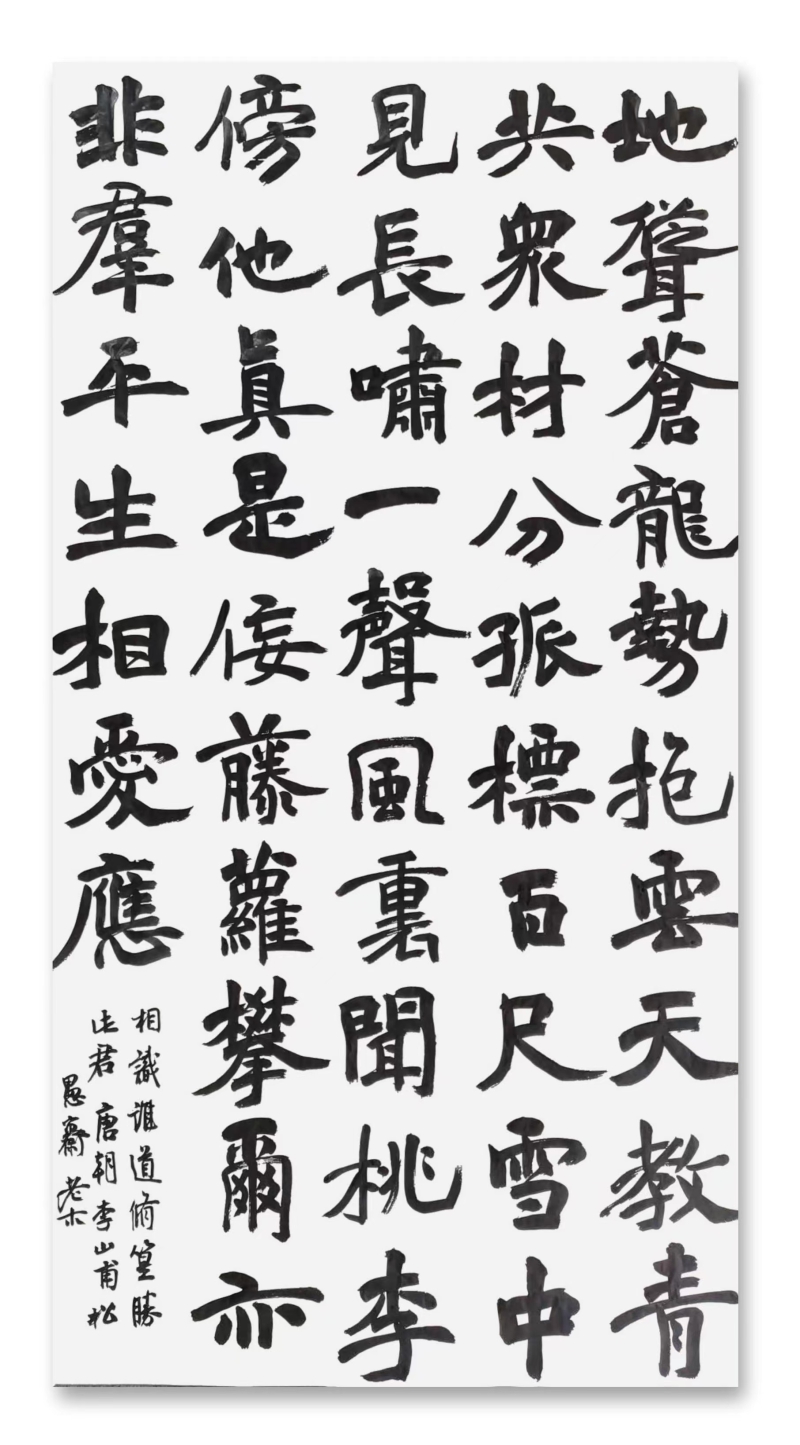 地聳蒼龍勢抱雲天教青
共衆材分孤標百尺雪中
見長嘯一聲風裏聞桃李
傍他眞是佞藤蘿攀爾亦
非羣平生相愛應
相識誰道脩篁勝
此君 唐朝李山甫松
愚齋